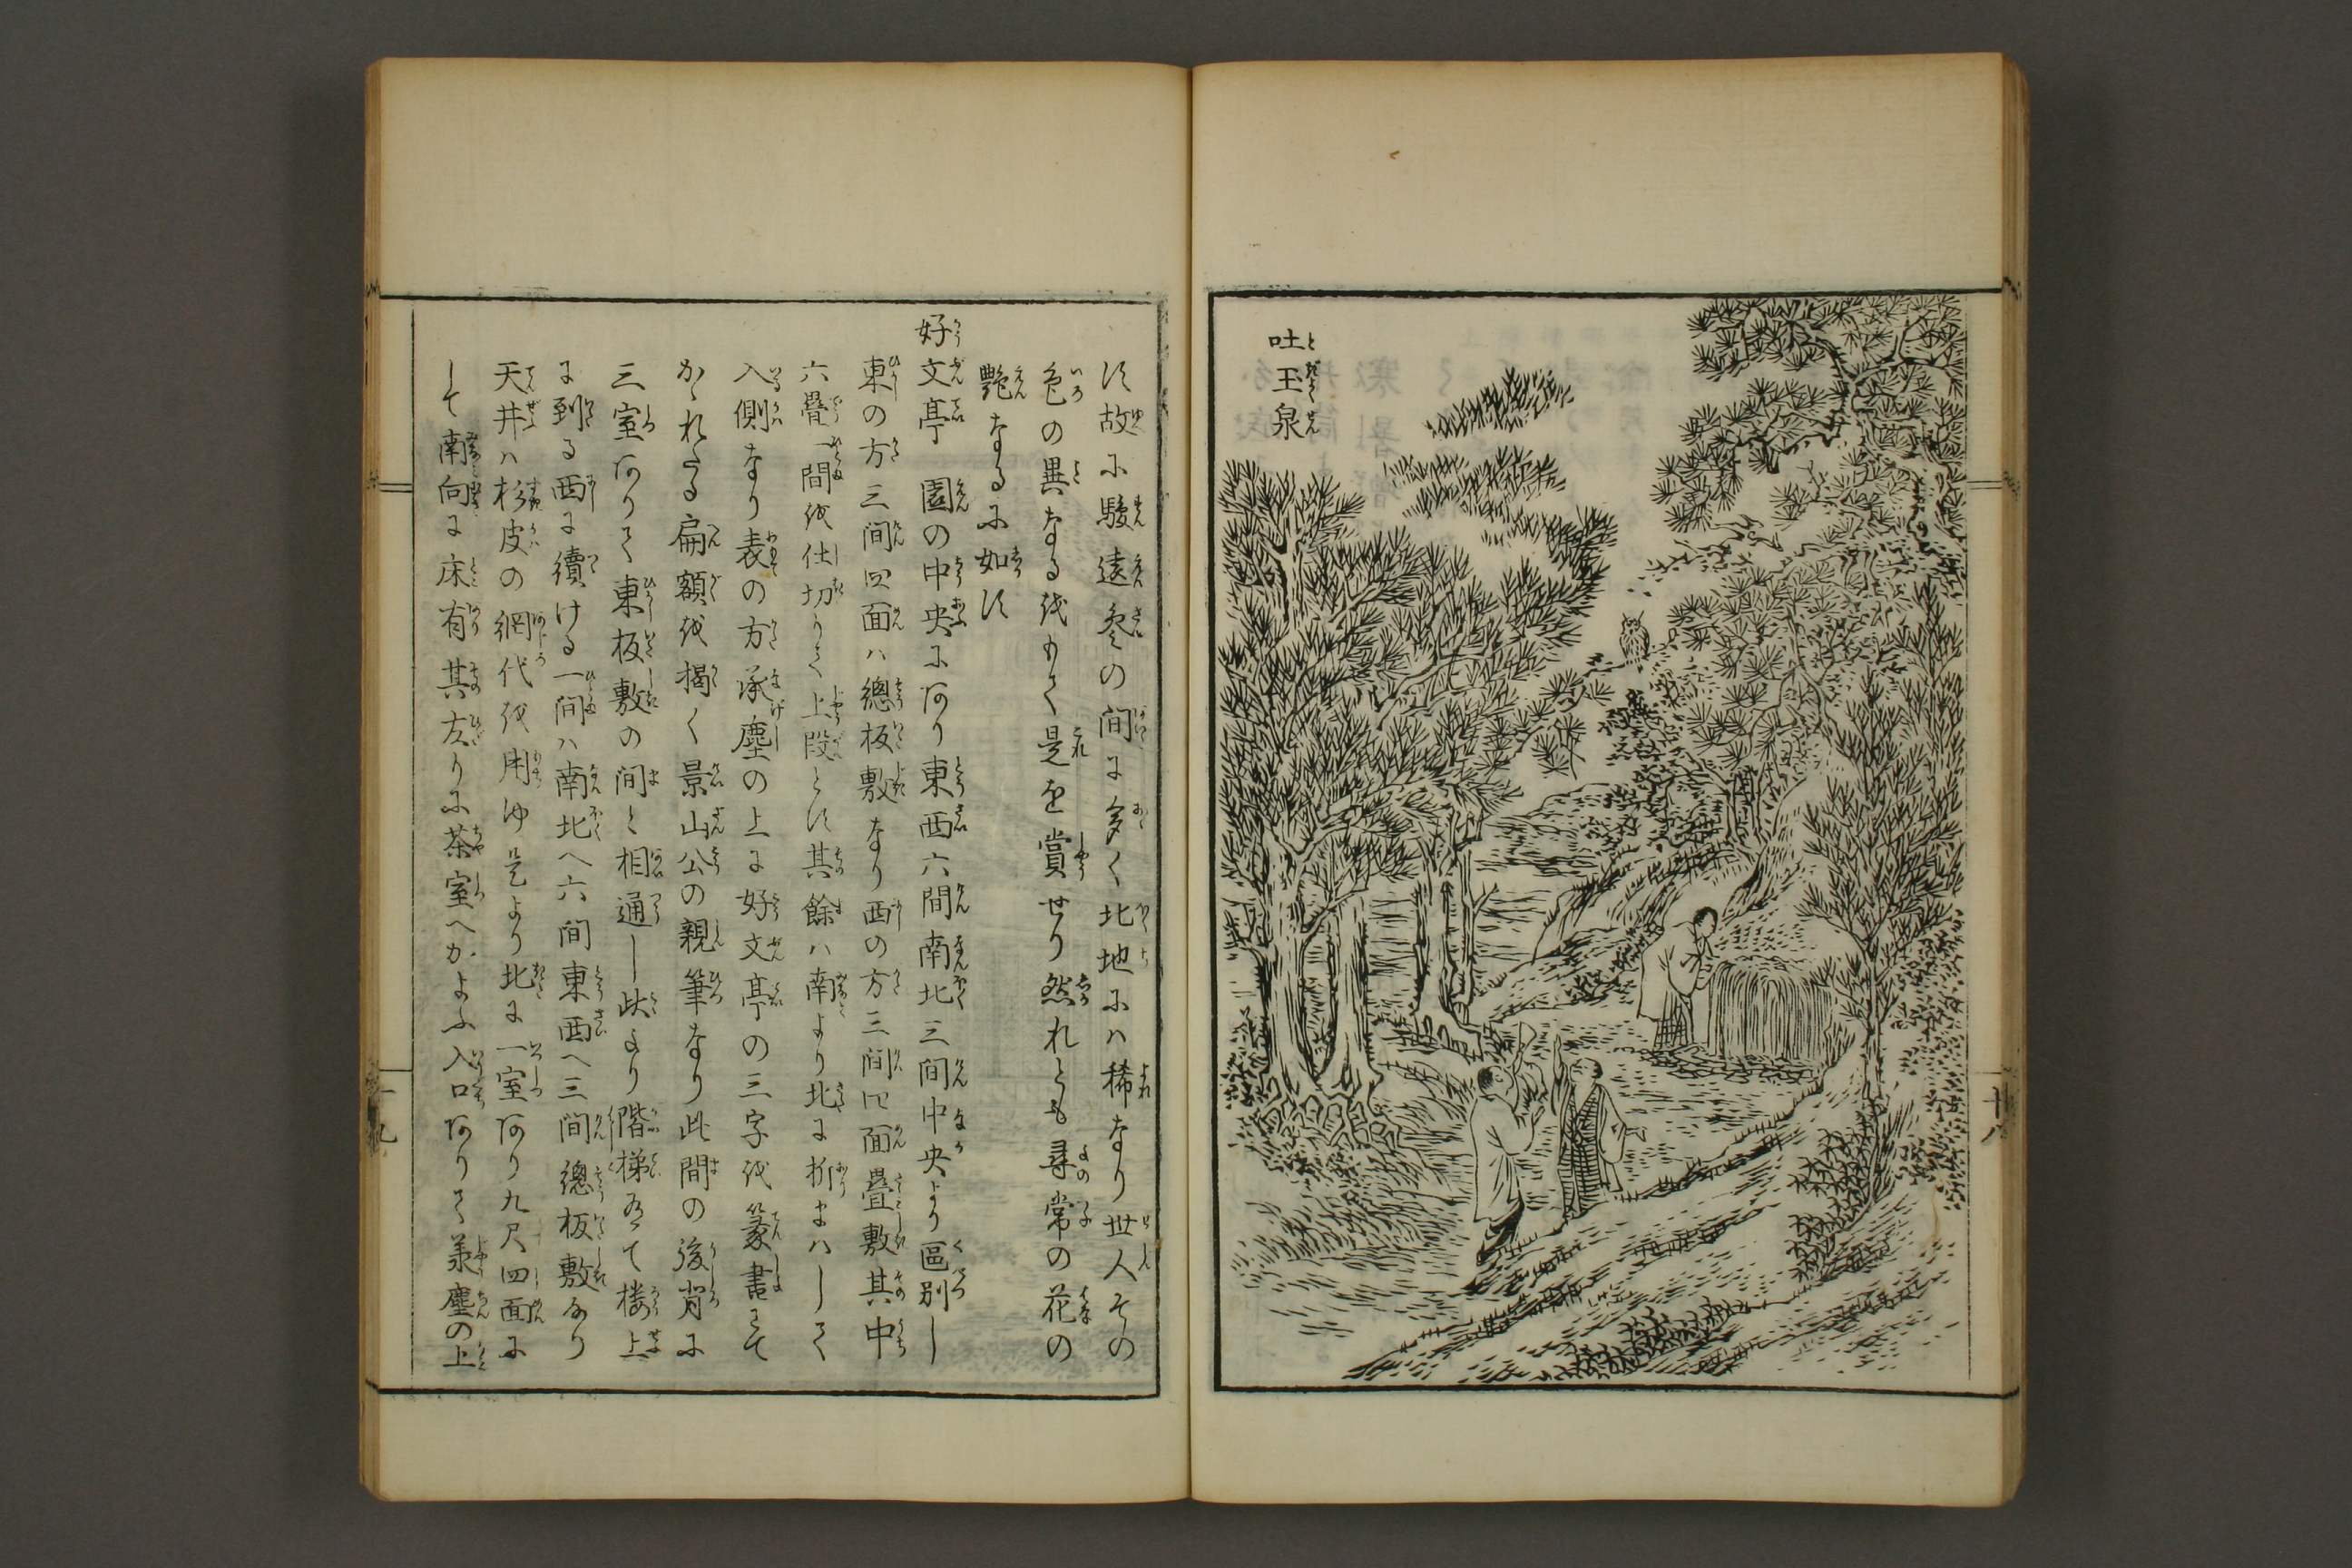 吐玉泉
す故に駿遠参の間に多く北地にハ稀なり世人その
色の異なるをもて是を賞せり然れとも尋常の花の
艶なるに如す
好文亭 園の中央にあり東西六間南北三間中央より區別し
東の方三间四面ハ總板敷なり西の方三间四面疊敷其中
六疊一間を仕切りて上段とす其餘ハ南より北に折まハして
入側なり表の方承塵の上に好文亭の三字を篆書にて
かゝれたる扁額を掲く景山公の親筆なり此間の後背に
三室ありて東板敷の间と相通し此より階梯ありて楼上
に到る西に續ける一间ハ南北へ六间東西へ三间總板敷なり
天井ハ杉皮の網代を用ゆ是より北に一室あり九尺四面に
して南向に床有其左りに茶室へかよふ入口ありて承塵の上
十八
十九